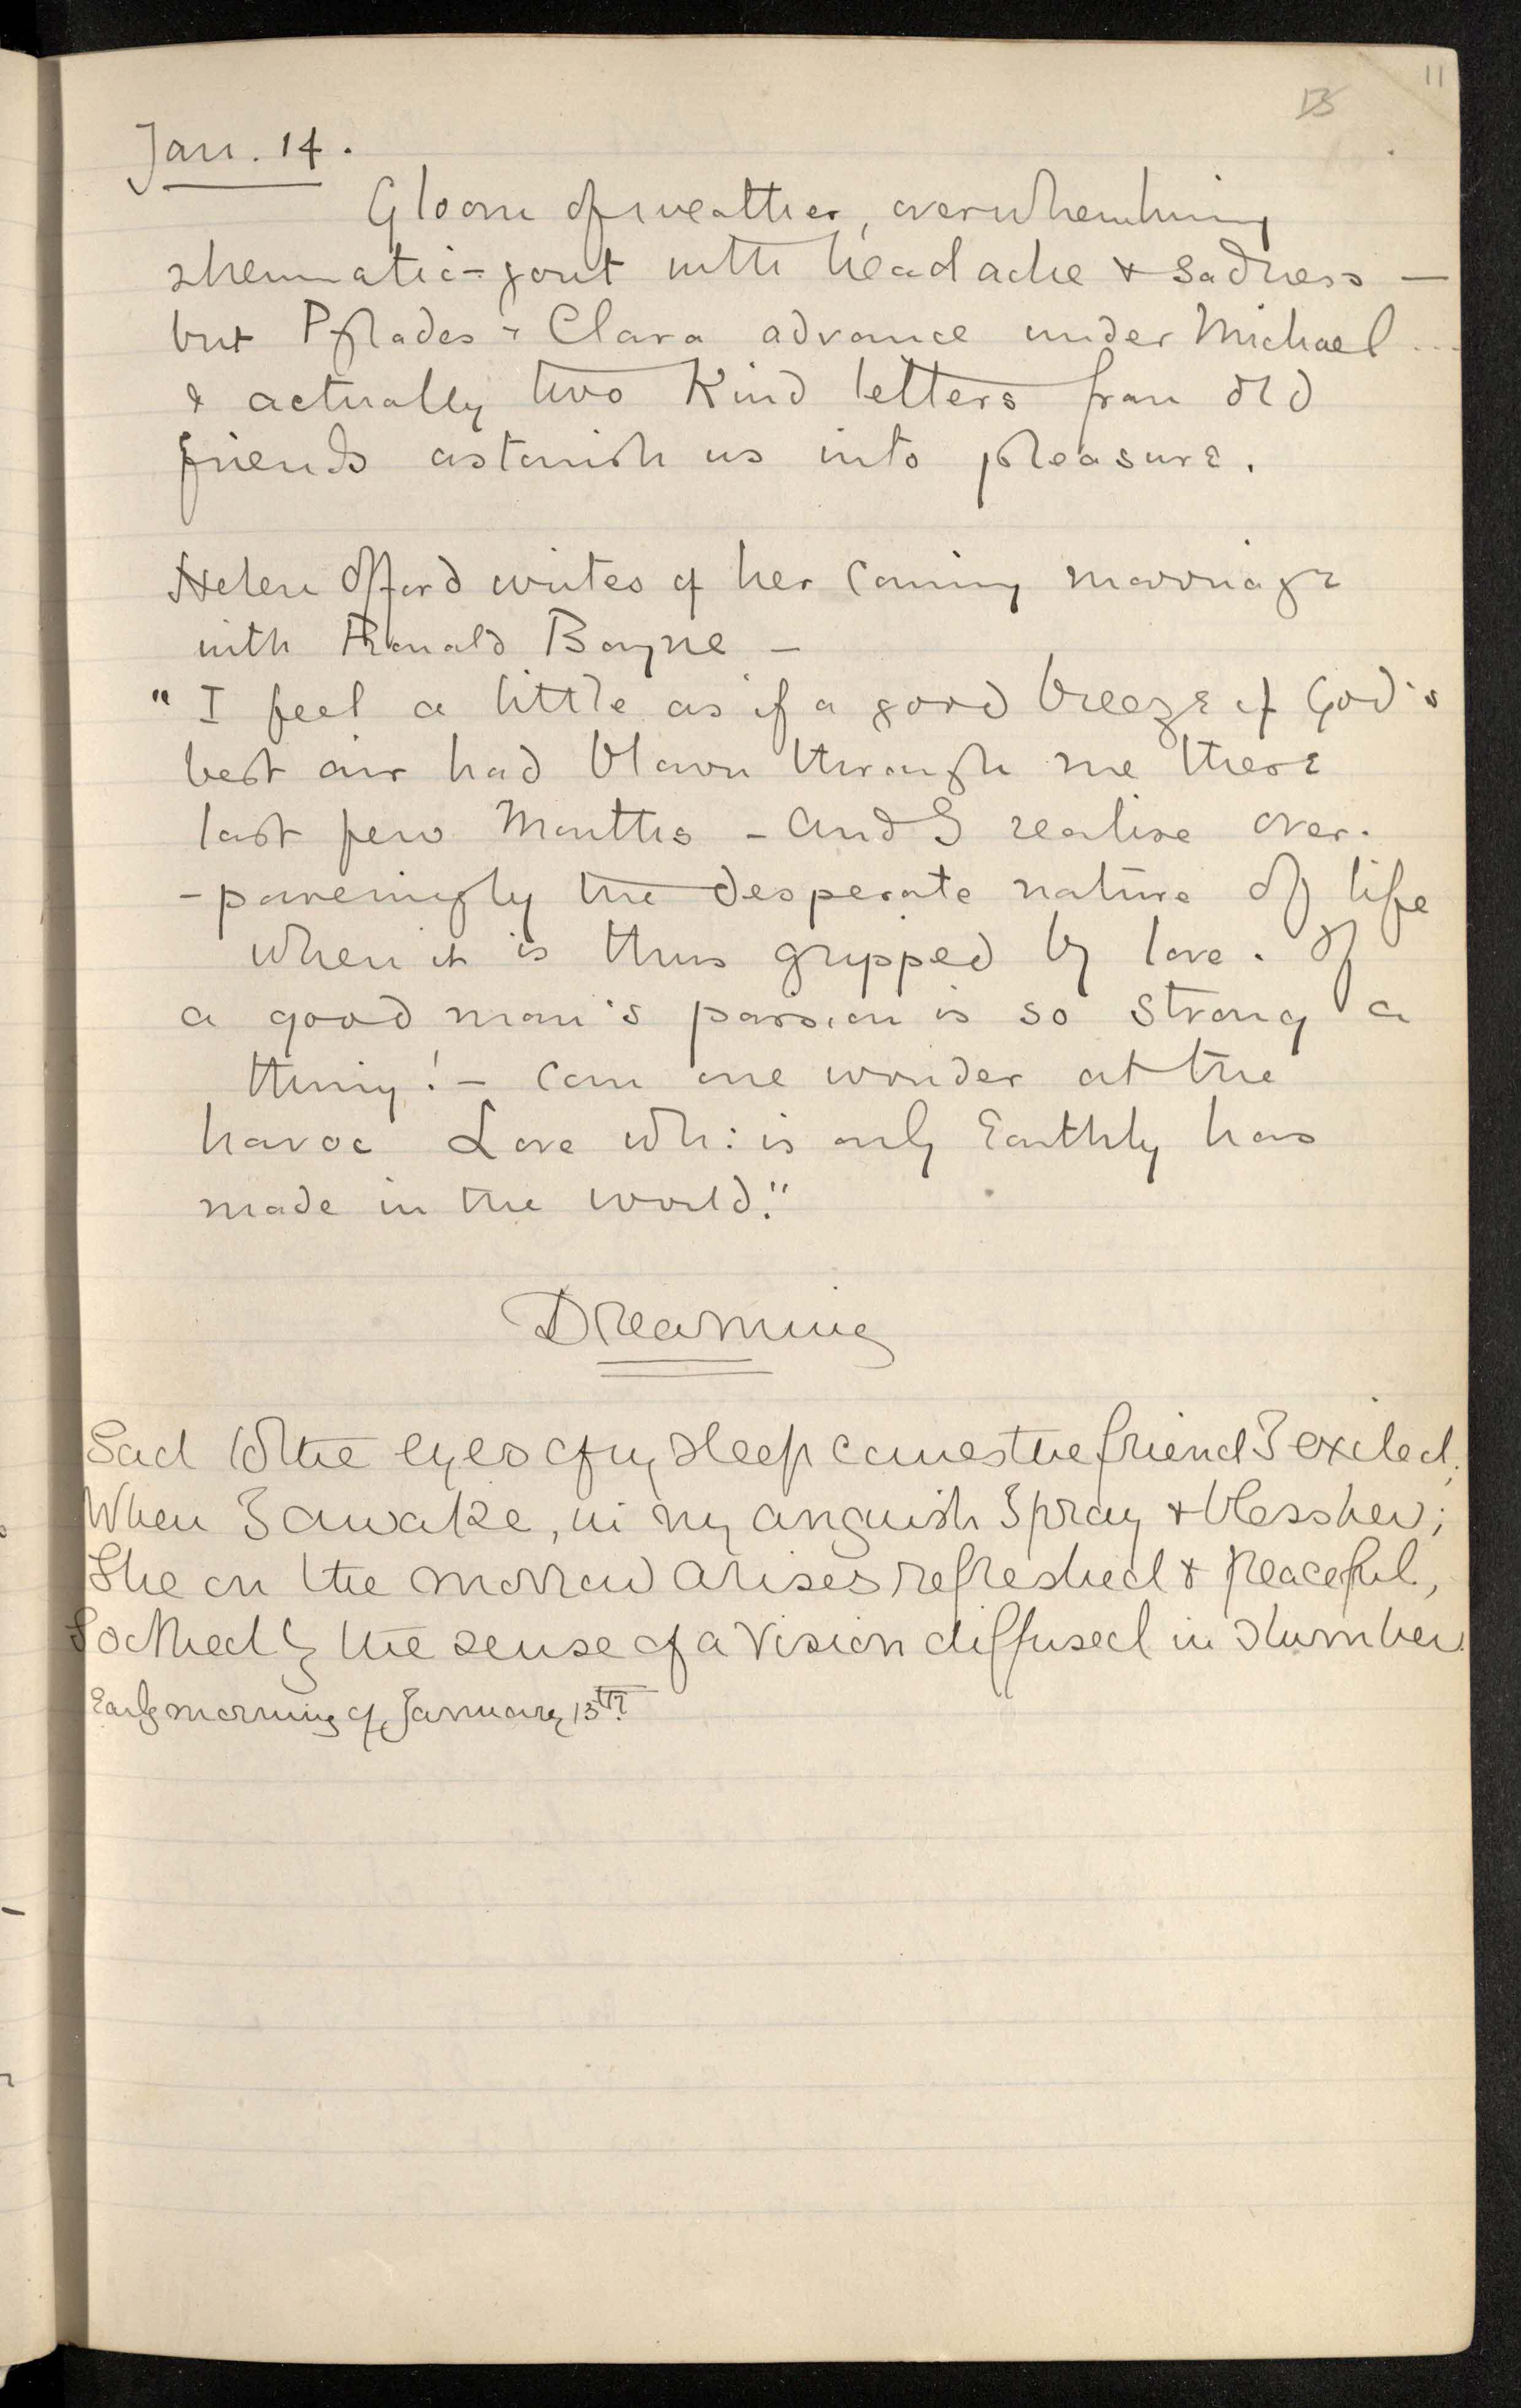 11
Jan. 14.
Gloom of weather, overwhelming
rheumatic-gout with headache & sadness —
but Pylades & Clara advance under Michael ...
& actually two kind letters from old
friends astonish us into pleasure.
Helen Offord writes of her coming marriage
with Ronald Bayne —
"I feel a little as if a good breeze of God's
best air had blown through me these
last few months — and I realise over-
-poweringly the desperate nature of life
when it is thus gripped by love. If
a good man's passion is so strong a
thing! — can one wonder at the
havoc Love wh: is only Earthly has
made in the world."
Dreaming
Sad to the eyes of my sleep comes the friend I exiled;
When I awake, in my anguish I pray & bless her;
She on the morrow arises refreshed & peaceful,
Soothed by the sense of a vision diffused in slumber.
Early morning of January 13th